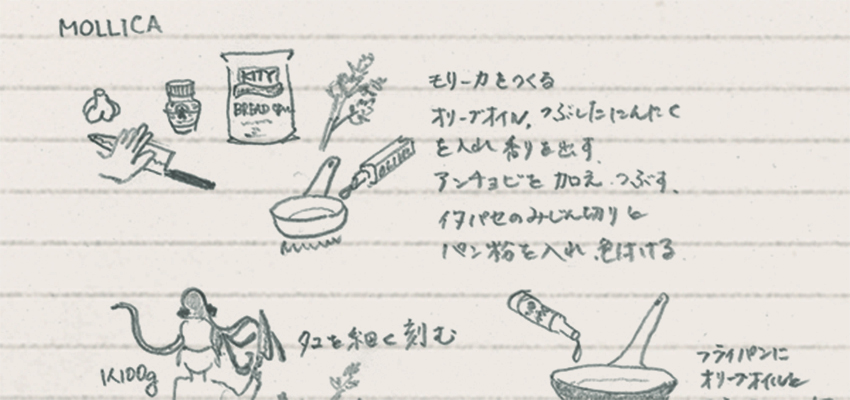 MOLLICA
KITY
BREAD
モリーカをつくる
オリーブオイル、つぶしたにんにく
を入れ 香りを出す.
アンチョビを 加え つぶす.
イタパセのみじん切りと
パン粉を入れ 色付ける
タコを細く刻む
1人100g
フライパンに
オリーブオイルと